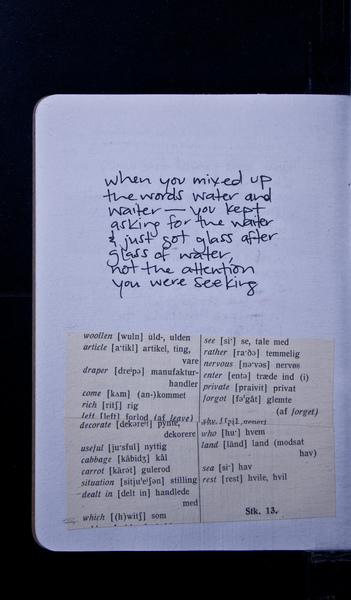 when you mixed up
the words water and
waiter — you kept
asking for the waiter
& just got glass after
glass of water,
not the attention
you were seeking
woollen [wuln] uld-, ulden
article [a·tikl] artikel, ting,
vare
draper [dre¹pə] manufaktur-
handler
come [kʌm] (an-)kommet
rich [ritʃ] rig
left [left] forlod (af leave)
decorate [dekəre¹t] pynte,
dekorere
useful [ju·sful] nyttig
cabbage [kâbidʒ] kål
carrot [kârət] gulerod
situation [sitju'e¹ʃən] stilling
dealt in [delt in] handlede
med
which [(h)witʃ] som
see [si·] se, tale med
rather [ra·ðə] temmelig
nervous [nə·vəs] nervøs
enter [entə] træde ind (i)
private [praivit] privat
forgot [fə'gåt] glemte
(af forget)
who [hu·] hvem
land [länd] land (modsat
hav)
sea [si·] hav
rest [rest] hvile, hvil
Stk. 13.